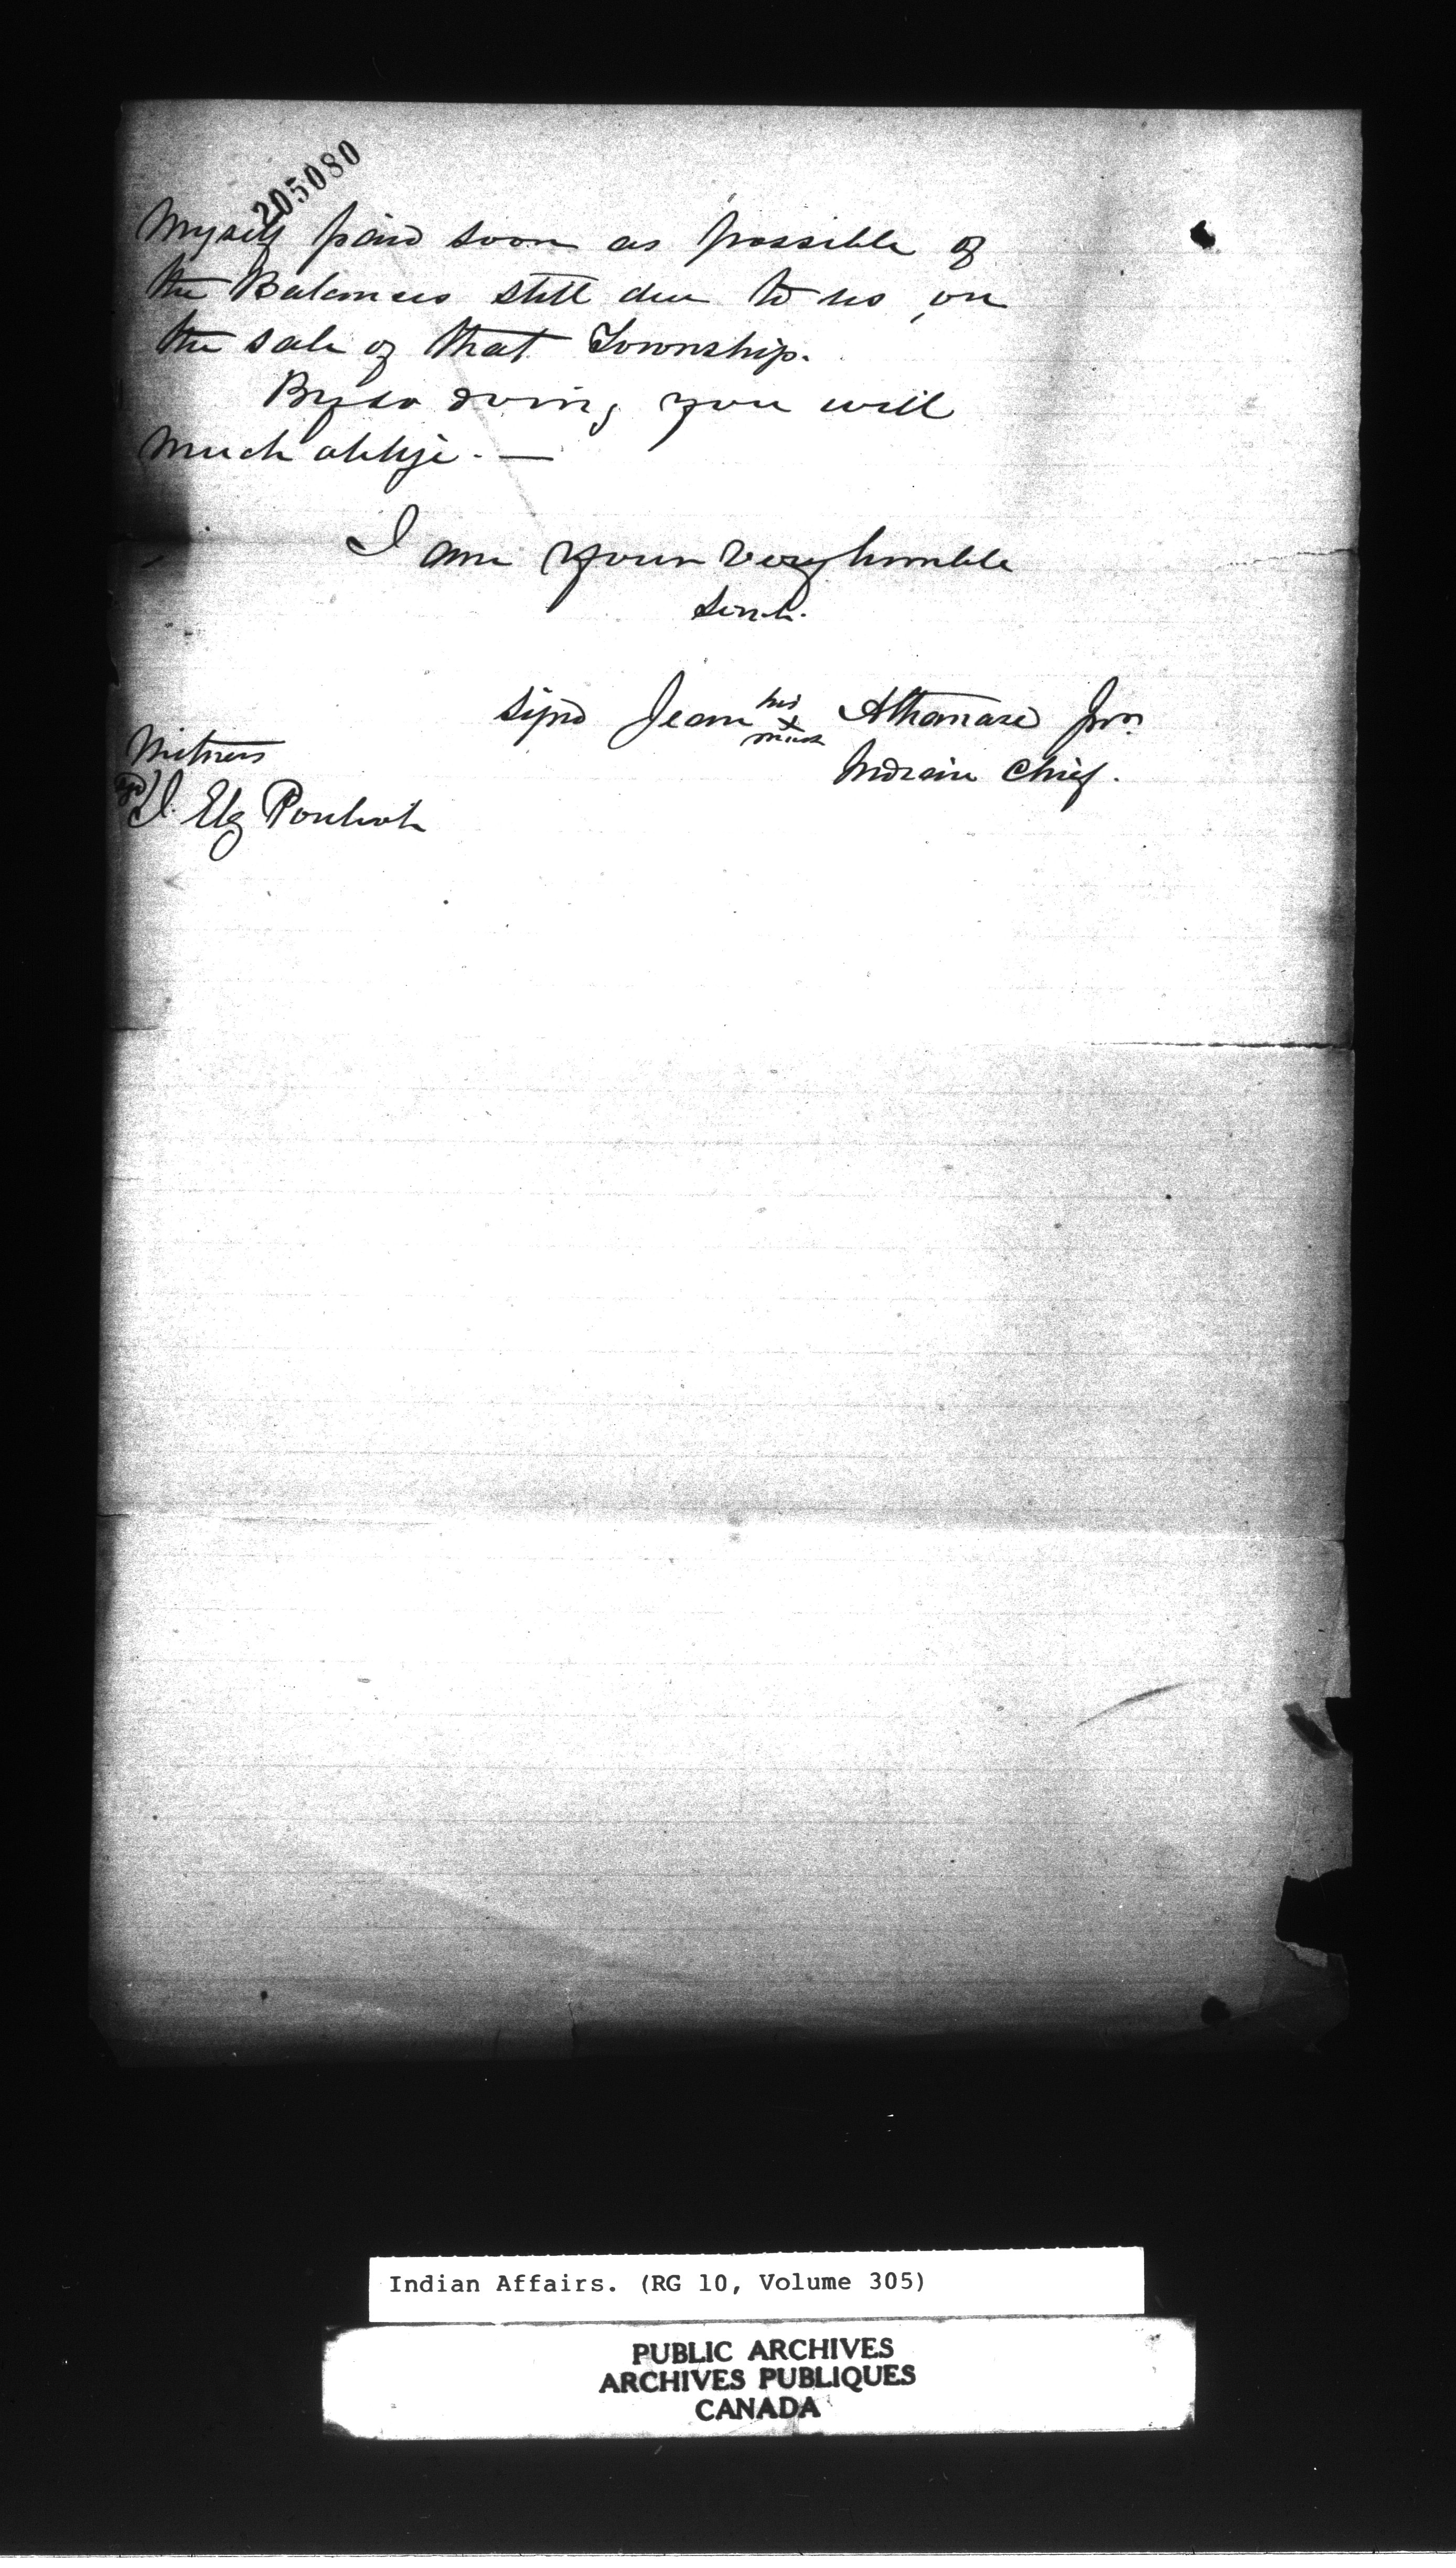 205080
Myself paid soon as possible of
the Balances still due to us, on
the sale of that Township.
By so doing you will
much oblige. —
I am your very humble
Servt.
Signd Jean his x mark Athanase Jnr.
Indian Chief.
Witness
Sgd
Indian Affairs. (RG 10, Volume 305)
PUBLIC ARCHIVES
ARCHIVES PUBLIQUES
CANADA